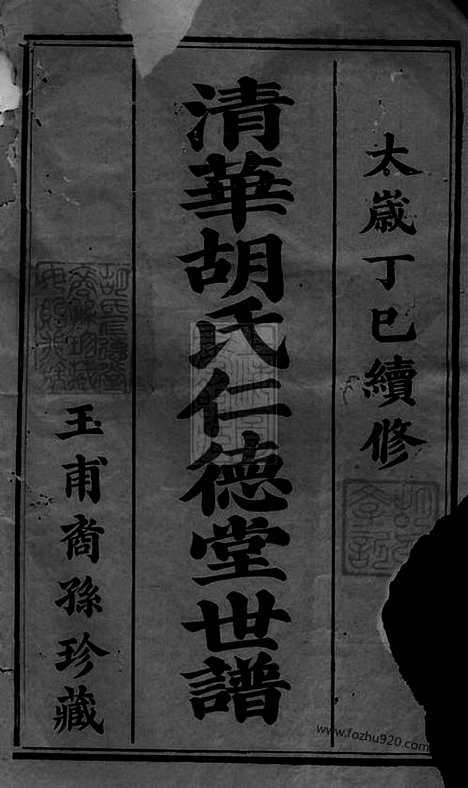 太歲丁巳續修
清華胡氏仁德堂世譜
玉甫裔孫珍藏
www.fozhu920.com